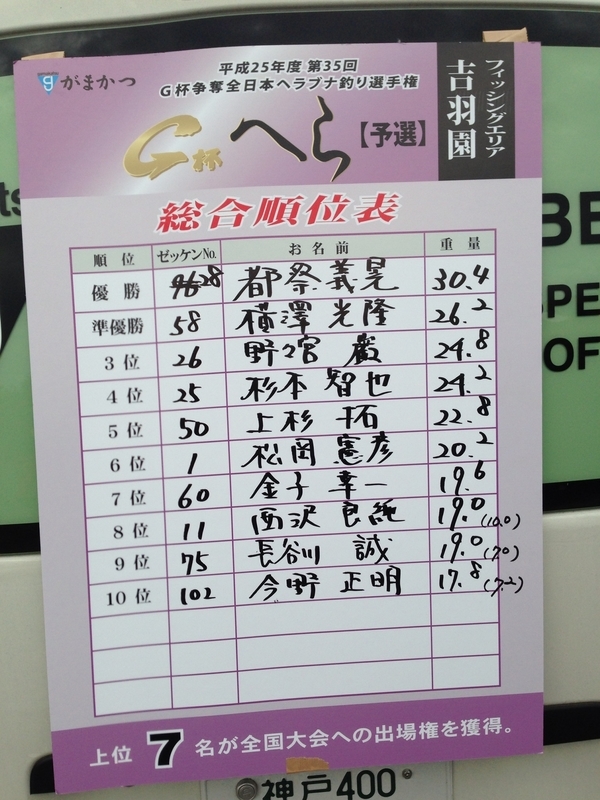 がまかつ
平成25年度 第35回
G杯争奪全日本ヘラブナ釣り選手権
G杯 へら 【予選】
フィッシングエリア
吉羽園
総合順位表
順位 ゼッケンNo. お名前 重量
優勝 28 都祭義晃 30.4
準優勝 58 横澤光隆 26.2
3位 26 野々宮 巌 24.8
4位 25 杉本智也 24.2
5位 50 上杉 24.8
6位 1 松岡憲彦 20.2
7位 60 金子幸一 19.6
8位 11 西沢良純 19.0 (10.0)
9位 75 長谷川 誠 19.0 (7.0)
10位 102 今野正明 17.8 (7.2)
上位 7 名が全国大会への出場権を獲得。
神戸400